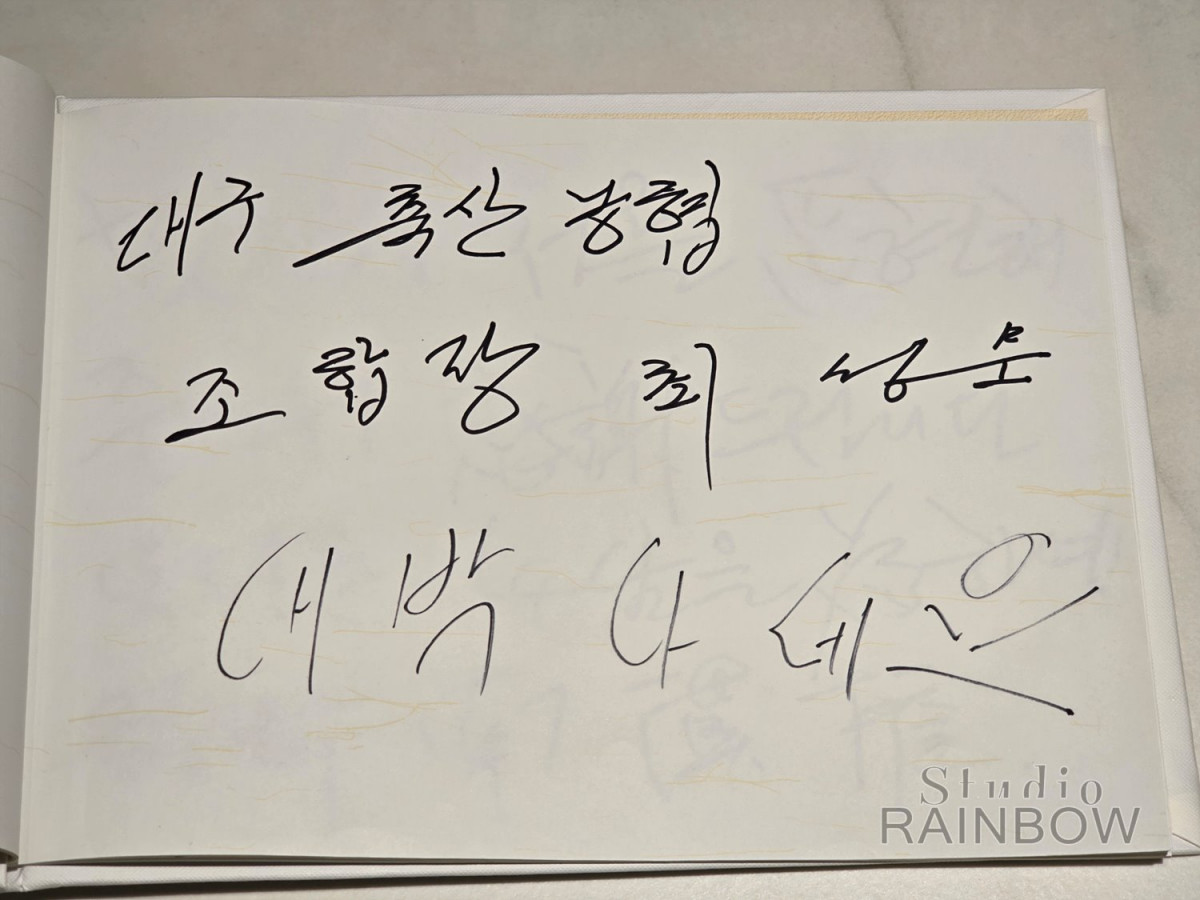 대구 축산 농협
조합장 최 성문
대박 나세요
Studio
RAINBOW